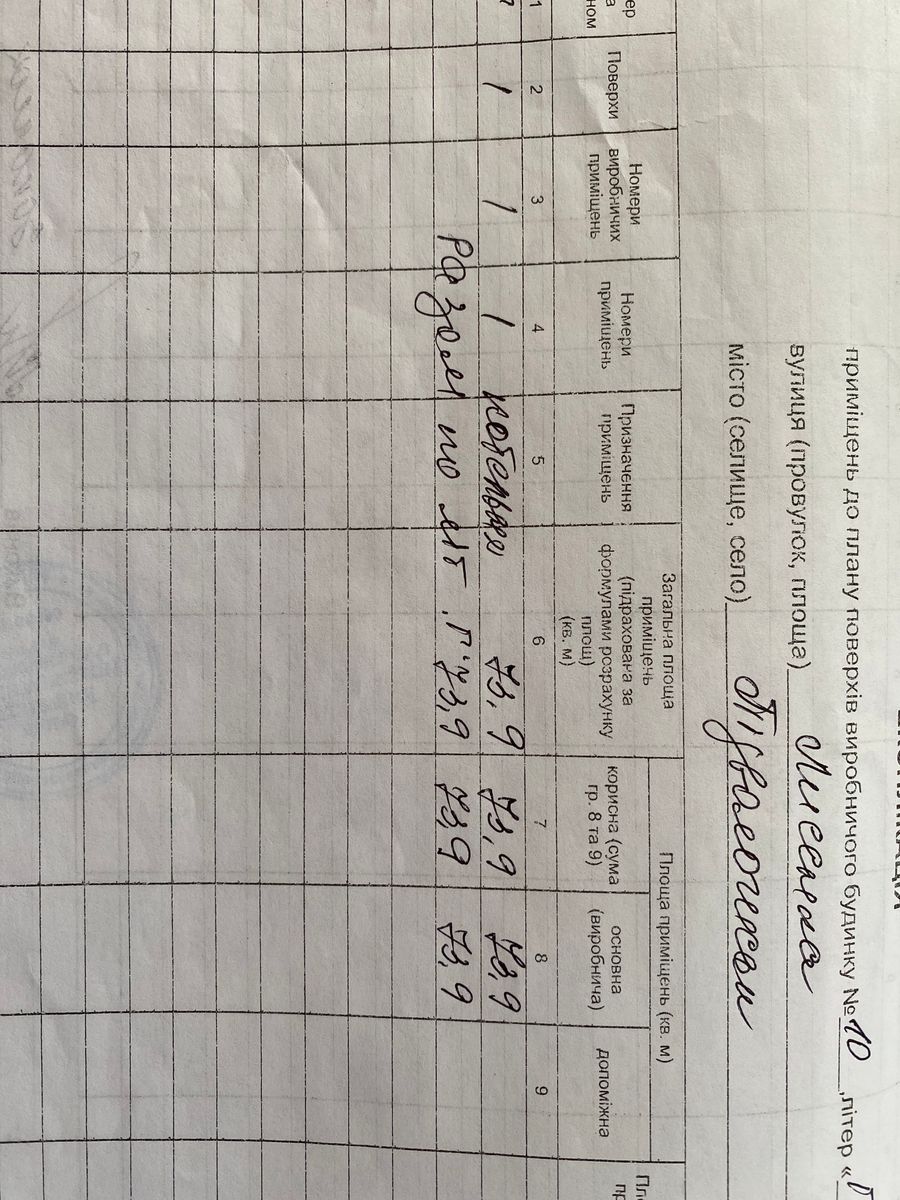 ЕКСПЛІКАЦІЯ
приміщень до плану поверхів виробничого будинку № 10, літер «Г
вулиця (провулок, площа) Лисенка
місто (селище, село) Підволочиськ
Поверхи
Номери виробничих приміщень
Номери приміщень
Призначення приміщень
Загальна площа приміщень (підрахована за формулами розрахунку площ) (кв. м)
Площа приміщень (кв. м)
корисна (сума гр. 8 та 9)
основна (виробнича)
допоміжна
1 2 3 4 5 6 7 8 9
1 1 1 котельня 73,9 73,9 73,9
Разом по літ. Г: 73,9 73,9 73,9